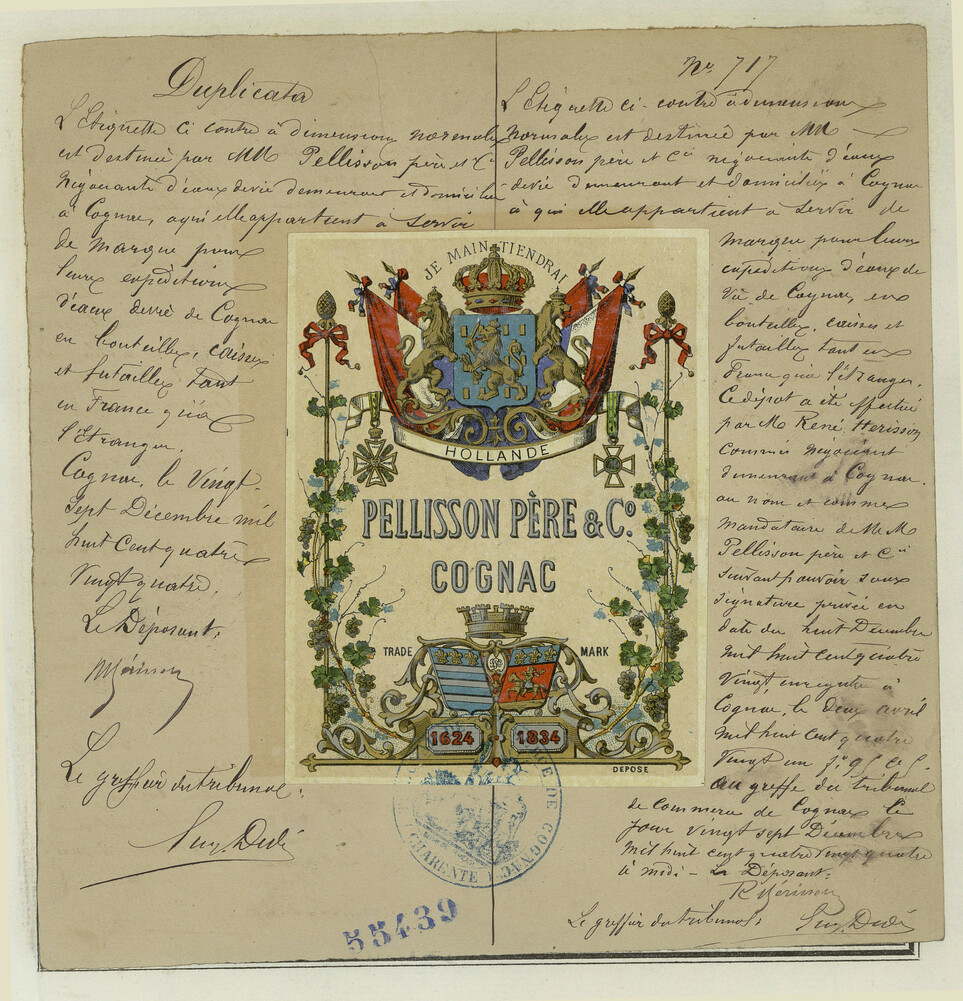 Duplicata
L'Etiquette ci contre à dimensions normales
est destinée par MM Pellisson père et Cie
Négociants d'eaux de vie demeurant et domiciliés
à Cognac, à qui elle appartient à servir
de marque pour
leurs expéditions
d'eaux de vie de Cognac
en bouteilles, caisses
et futailles tant
en France qu'à
l'Etranger.
Cognac, le Vingt-
Sept Décembre mil
huit cent quatre
Vingt quatre,
Le Déposant,
Le greffier du tribunal:
No 717
L'Etiquette ci-contre à dimensions
Normales est destinée par MM
Pellisson père et Cie négociants d'eaux
de vie demeurant et domiciliés à Cognac
à qui elle appartient à servir de
marque pour leurs
expéditions d'eaux de
Vie de Cognac, en
bouteilles, caisses et
futailles tant en
France qu'à l'étranger.
Ce dépot a été effectué
par M. René Herisson
Commis Négociant
demeurant à Cognac.
au nom et comme
mandataire de M.M
Pellisson père et Cie
suivant pouvoir sous
signature privée en
date du huit Décembre
mil huit cent quatre
Vingt, enregistré à
Cognac, le deux avril
mil huit cent quatre
Vingt un
au greffe du tribunal
de commerce de Cognac le
jour vingt sept Décembre
mil huit cent quatre vingt quatre
à midi - Le Déposant.
R. Hérisson
Le greffier du tribunal:
JE MAINTIENDRAI
HOLLANDE
PELLISSON PÈRE & Co.
COGNAC
TRADE MARK
1624 1834
DEPOSE
DE COGNAC
CHARENTE
55439